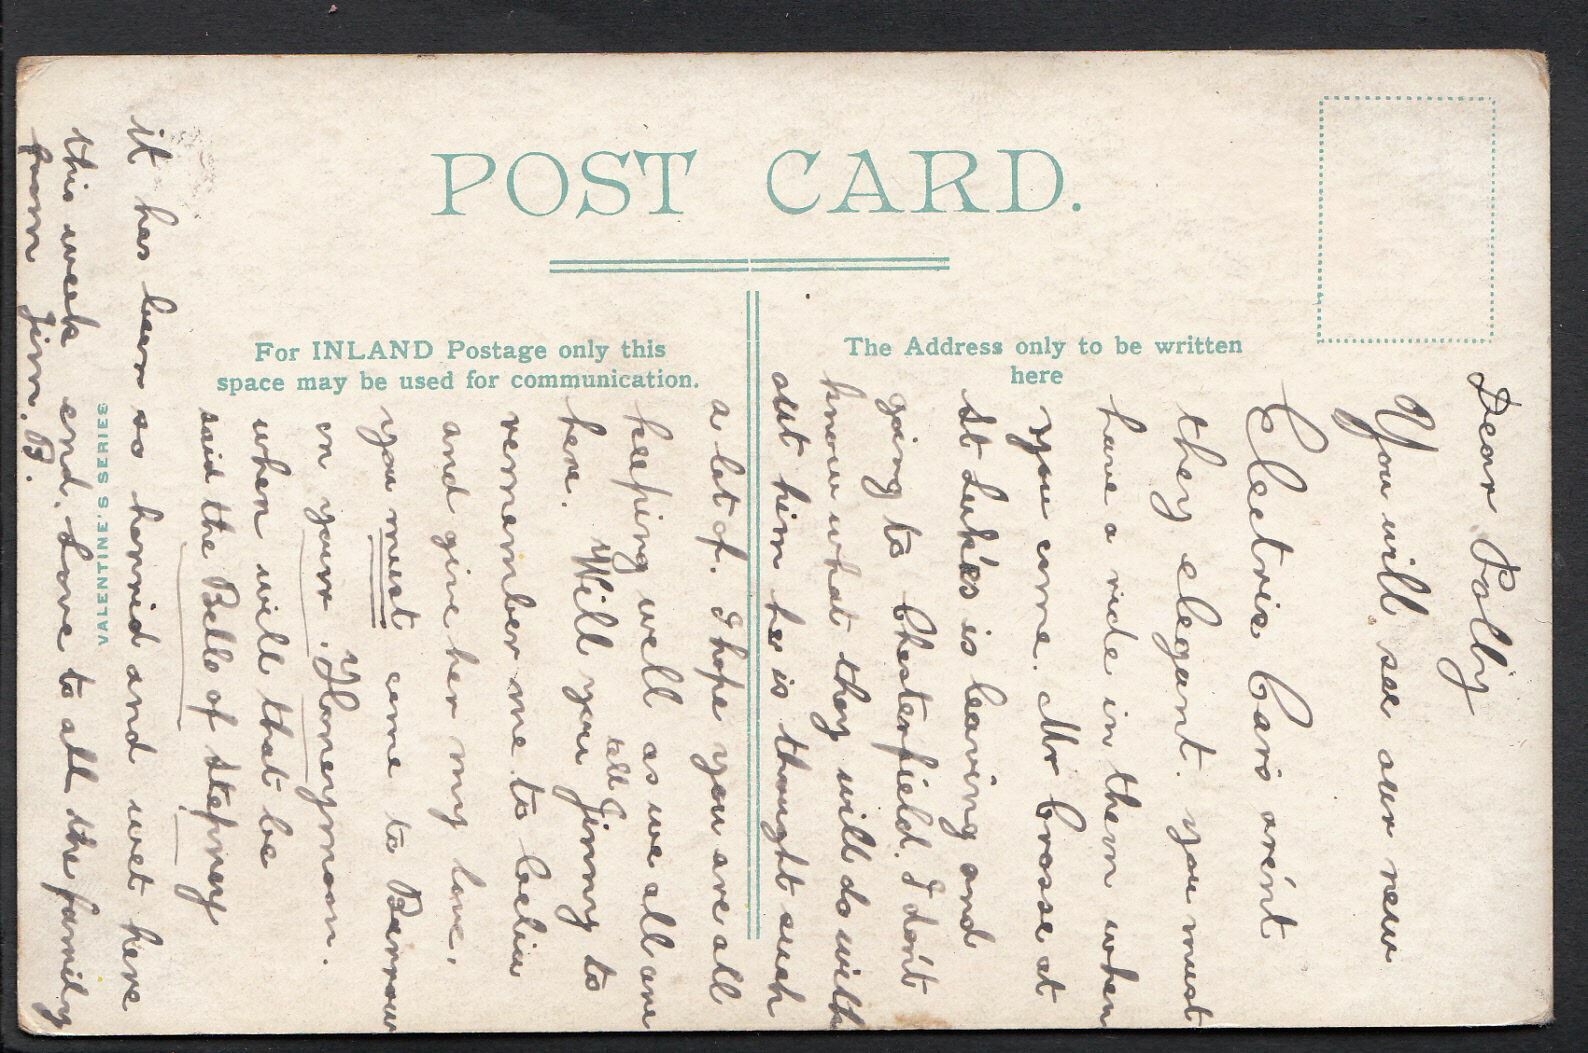 POST CARD.
For INLAND Postage only this
space may be used for communication.
The Address only to be written
here
VALENTINE'S SERIES
Dear Polly
You will see our new
Electric Cars are'nt
they elegant. you must
have a ride in them when
you come. Mr Crosse at
St Luk'es is leaving and
going to Chesterfield. I don't
know what they will do with
out him he is thought such
a lot of. I hope you are all
keeping well as we all are
here. Will you tell Jinny to
remember me to
and give her my love,
you must come to Barrow
on your Honeymoon.
when will that be
said the Bells of Stepney
it has been so horrid and wet here
this week end. Love to all the family
from Jim. B.